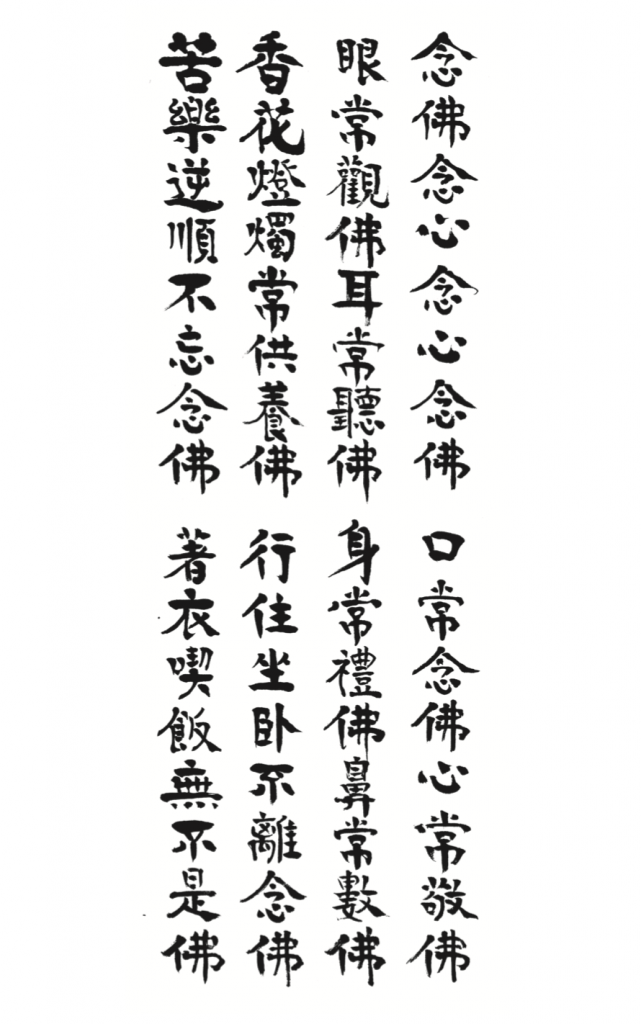 念佛念心念心念佛
口常念佛心常敬佛
眼常觀佛耳常聽佛
身常禮佛鼻常數佛
香花燈燭常供養佛
行住坐卧不離念佛
苦樂逆順不忘念佛
著衣喫飯無不是佛